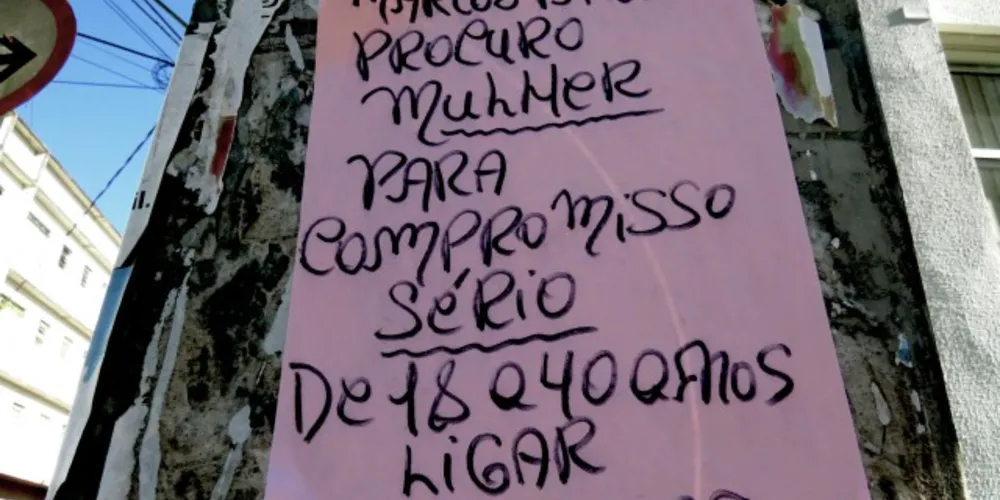 PROCURO
MULHER
PARA
COMPROMISSO
SÉRIO
De 18 a 40 aANOS
LIGAR